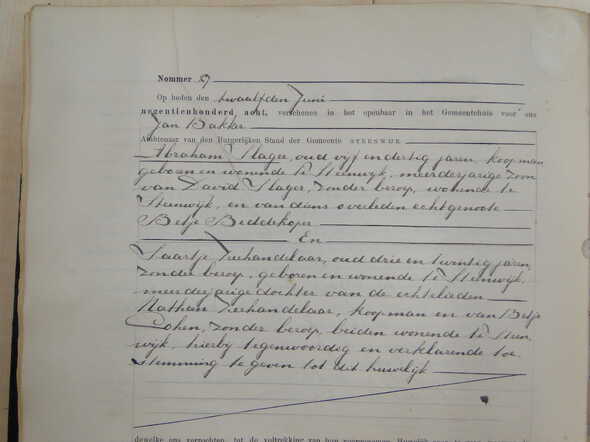 Nommer 9
Op heden den twaalfden Juni
negentienhonderd acht, verschenen in het openbaar in het Gemeentehuis voor ons
Jan Bakker
Ambtenaar van den Burgerlijken Stand der Gemeente STEENWIJK
Abraham Slager, oud vijf en dertig jaren, koopman
geboren en wonende te Steenwijk, meerderjarige zoon
van David Slager, zonder beroep, wonende te
Steenwijk, en van diens overleden echtgenoote
Betje Beddekoper
En
Saartje Veehandelaar, oud drie en twintig jaren,
zonder beroep, geboren en wonende te Steenwijk,
meerderjarige dochter van de echtelieden
Nathan Veehandelaar, koopman en van Betje
Cohen, zonder beroep, beiden wonende te Steen
wijk, hierbij tegenwoordig en verklarende toe
stemming te geven tot dit huwelijk
dewelke ons verzochten, tot de voltrekking van hun voorgenomen Huwelijk